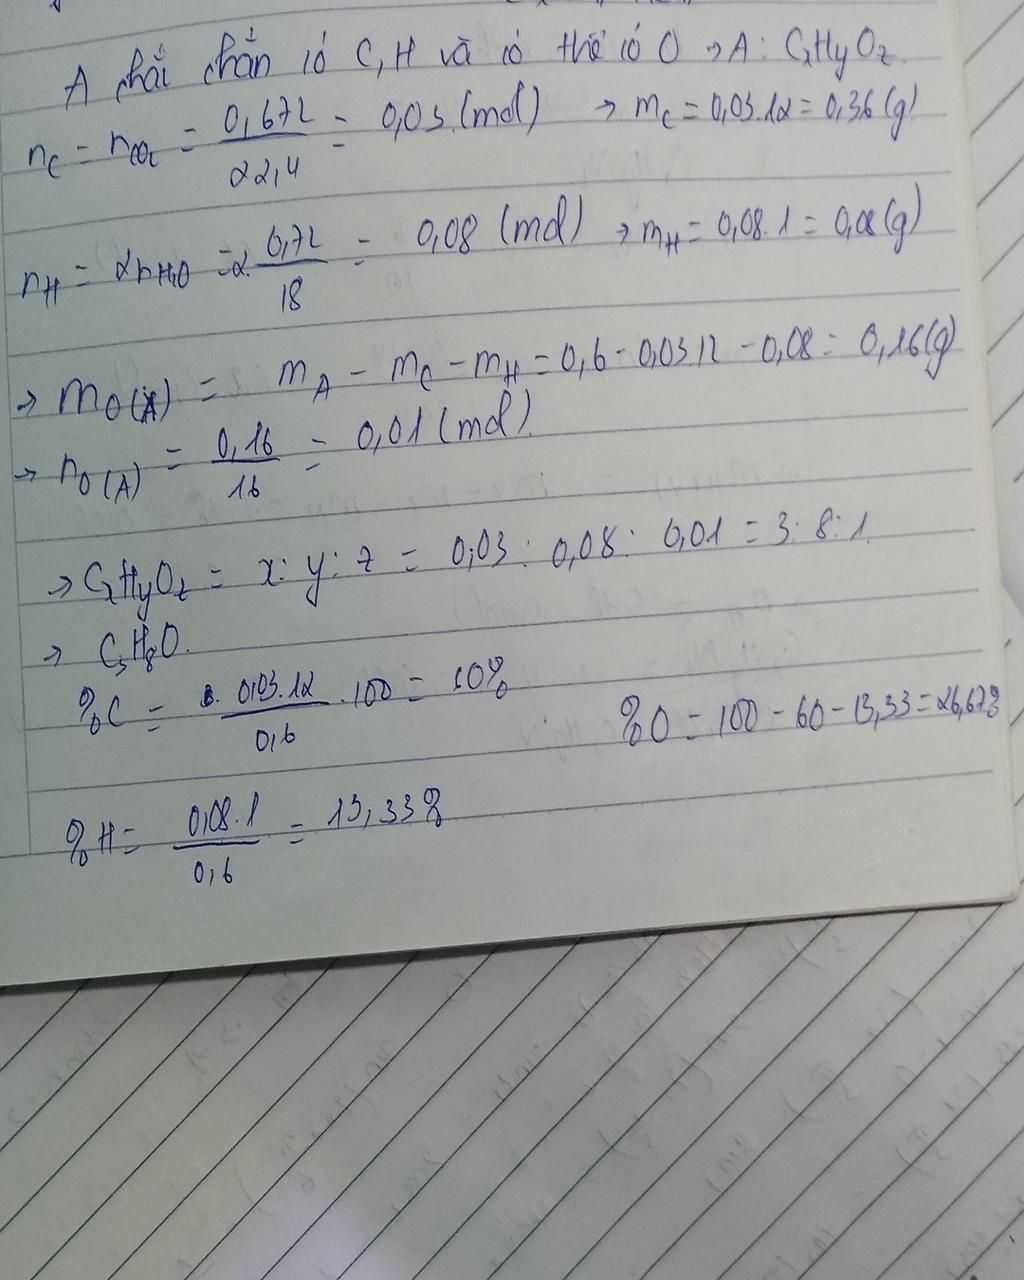 A chắc chắn có C, H và có thể có O → A: CxHyOz.
nC = nCO2 = 0,672 / 22,4 = 0,03 (mol) → mC = 0,03.12 = 0,36 (g)
nH = 2nH2O = 2. 0,72 / 18 = 0,08 (mol) → mH = 0,08.1 = 0,08 (g)
→ mO(A) = mA - mC - mH = 0,6 - 0,03.12 - 0,08 = 0,16 (g)
→ nO(A) = 0,16 / 16 = 0,01 (mol).
→ CxHyOz = x: y: z = 0,03 : 0,08 : 0,01 = 3: 8: 1.
→ C3H8O.
%C = 0,03.12 / 0,6 .100 = 60%
%O = 100 - 60 - 13,33 = 26,67%
%H = 0,08.1 / 0,6 = 13,33%